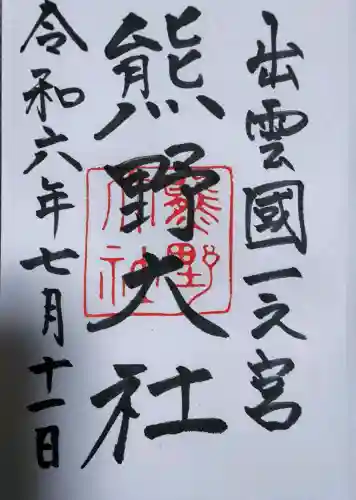 出雲國一之宮
熊野大社
令和六年七月十一日
熊野
大社